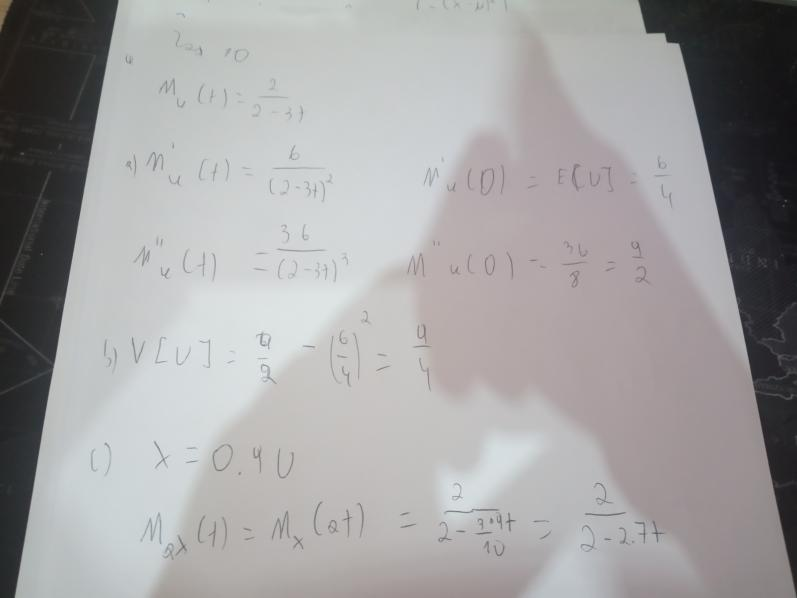 Zad 10
M_U (t) = 2 / (2 - 3t)
a) M'_U (t) = 6 / (2-3t)^2    M'_U (0) = E[U] = 6/4
M''_U (t) = 36 / (2-3t)^3    M''_U (0) = 36/8 = 9/2
b) V[U] = 9/2 - (6/4)^2 = 9/4
c) X = 0.9 U
M_aX (t) = M_X (at) = 2 / (2 - 3·9t/10) = 2 / (2 - 2.7t)